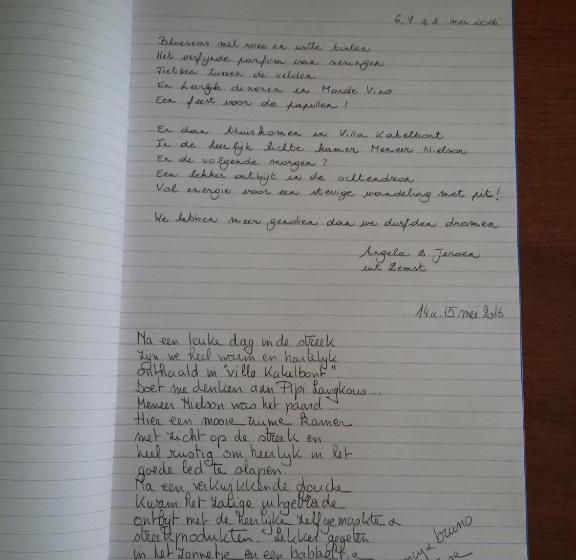 6, 7 & 8 mei 2016
Bloesems met roze en witte tinten
Het verfijnde parfum van seringen
Fietsen tussen de velden
En heerlijk dineren in Monde Vino
Een feest voor de papillen !
En dan thuiskomen in Villa Kakelbont
In de heerlijk lichte kamer Meneer Nielson
En de volgende morgen ?
Een lekker ontbijt in de ochtendzon
Vol energie voor een stevige wandeling met pit !
We hebben meer genoten dan we durfden dromen
Angela & Jeroen
uit Zemst
14 & 15 mei 2016
Na een leuke dag in de streek
zijn we heel warm en hartelijk
onthaald in "Villa Kakelbont".
Doet me denken aan Pipi Langkous...
Meneer Nielson was het paard ...
Hier een mooie ruime kamer
met zicht op de streek en
heel rustig om heerlijk in het
goede bed te slapen.
Na een verkwikkende douche
kwam het zalige uitgebreide
ontbijt met de heerlijke zelfgemaakte &
streekprodukten. Lekker gegeten
in het zonnetje en een babbeltje
& bruno